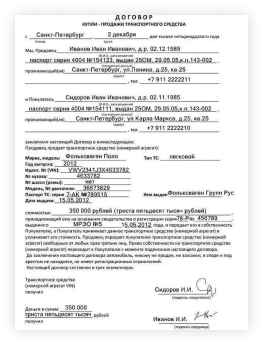 ДОГОВОР
КУПЛИ – ПРОДАЖИ ТРАНСПОРТНОГО СРЕДСТВА
г. Санкт-Петербург 2 декабря две тысячи четырнадцатого года
Мы, Продавец, Иванов Иван Иванович, д.р. 02.12.1985
паспорт серия 4004 №154123, выдан 25ОМ, 29.05.05,к.п.143-002
проживающий(ая) Санкт-Петербург, ул.Ленина, д.25, кв 25
тел. +7 911 2222211
и Покупатель Сидоров Иван Иванович, д.р. 02.12.1985
паспорт серия 4004 №154111, выдан 25ОМ, 29.05.05,к.п.143-002
проживающий(ая) Санкт-Петербург, ул.Карла Маркса, д.25, кв.25
тел. +7 911 2222222
заключили настоящий Договор о нижеследующем:
Продавец продает транспортное средство (номерной агрегат):
Марка, модель Фольксваген Поло Тип ТС: легковой
Год выпуска* 2012
Идент. № (VIN): VWV2341J3X4633782
№ кузова: 4633782
№ шасси (рамы): нет
Модель, № двигателя: 36673829
Паспорт ТС: серия 7-АК №789515 Кем выдан Фольксваген Групп Рус
15.05.2012
стоимостью 350 000 рублей (триста пятьдесят тысяч рублей)
принадлежащий ему на основании свидетельства о праве регистрации серия 78-РМ 456789
выданного МРЭО №5 15.05.2012, и передает его в собственность
Покупателя, а Покупатель принимает данное транспортное средство (номерной агрегат) и
уплачивает его стоимость. Продавец передает покупателю транспортное средство (номерной
агрегат) свободным от любых прав третьих лиц. Право собственности на транспортное средство
(номерной агрегат) переходит к Покупателю с момента подписания настоящего договора.
До заключения настоящего договора автомобиль, никому не продан, не заложен, в споре и под
арестом не находится, не имеет регистрационных ограничений.
Настоящий договор составлен в трех экземплярах.
Транспортное средство
(номерной агрегат VIN)
получил
Сидоров И.И.
Деньги в сумме 350 000
триста пятьдесят тысяч рублей
получил
Иванов И.И.